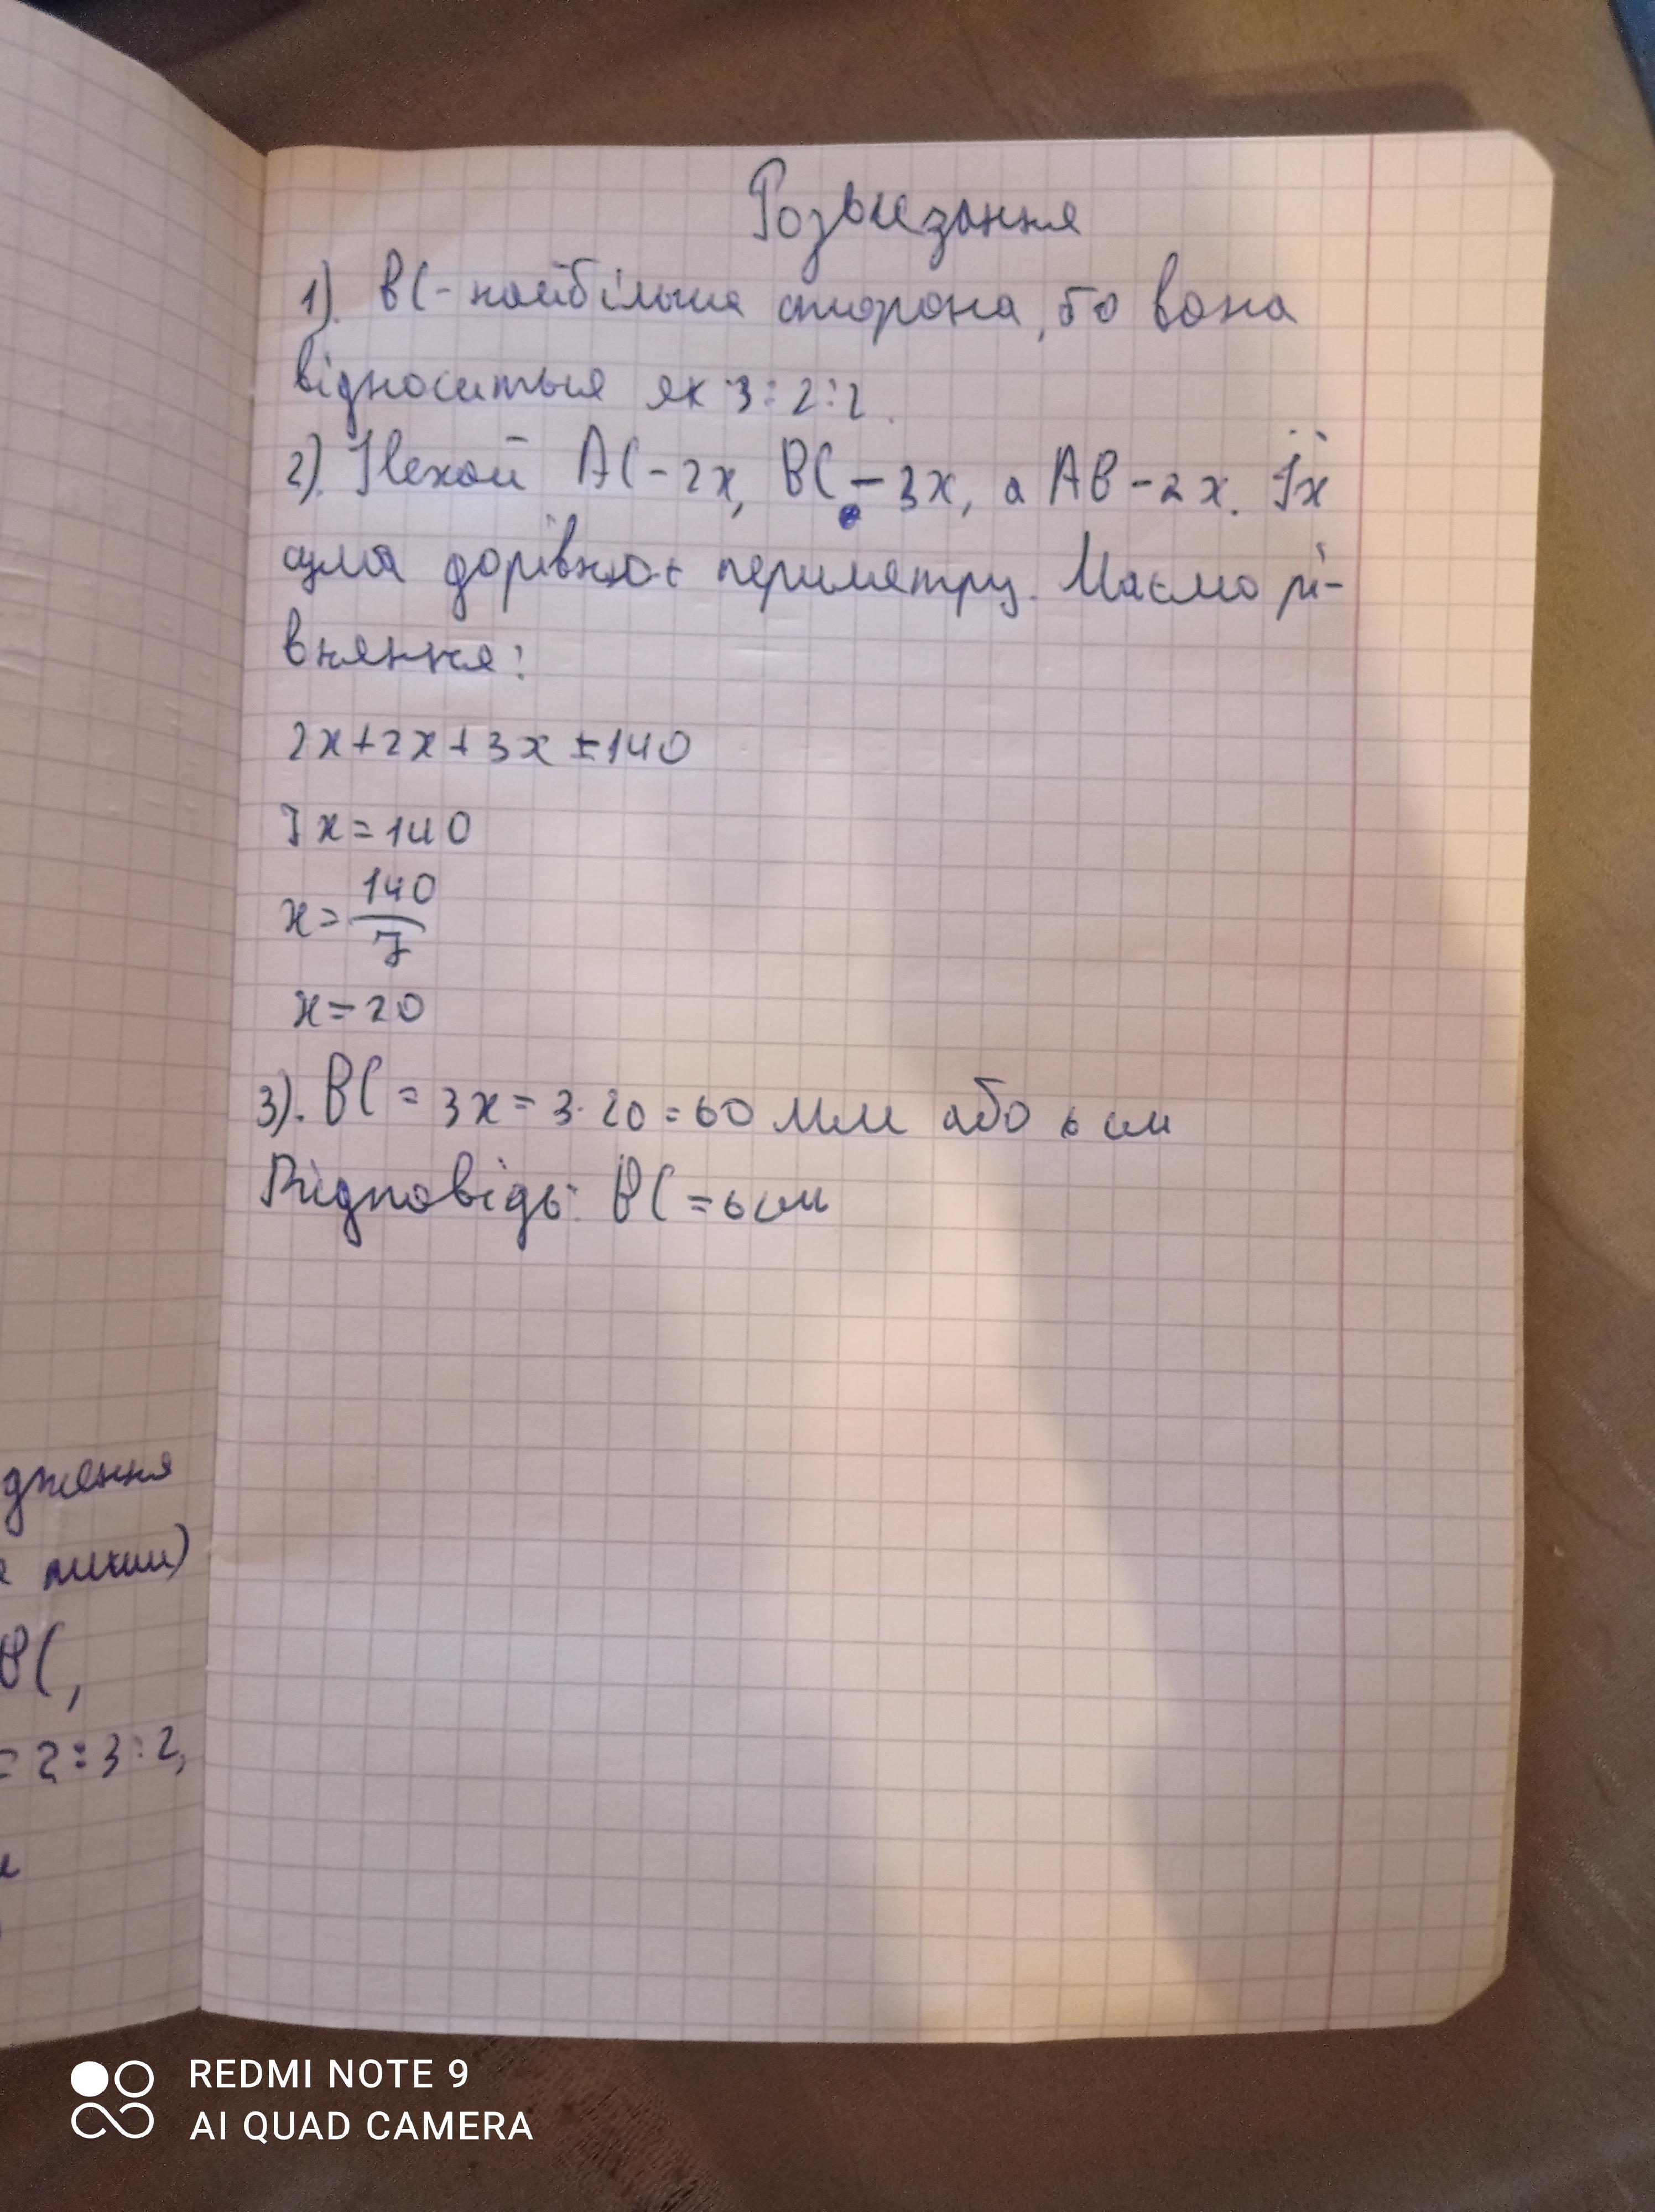 дження
е лиши)
BC,
= 2:3:2,
Розвʼязання
1). BC - найбільша сторона, бо вона
відноситься як 3:2:2.
2). Нехай AC - 2x, BC - 3x, а AB - 2x. Їх
сума дорівнює периметру. Маємо рі-
вняння:
2x+2x+3x=140
7x=140
x=140/7
x=20
3). BC = 3x = 3·20=60 мм або 6 см
Відповідь: BC = 6 см
REDMI NOTE 9
AI QUAD CAMERA